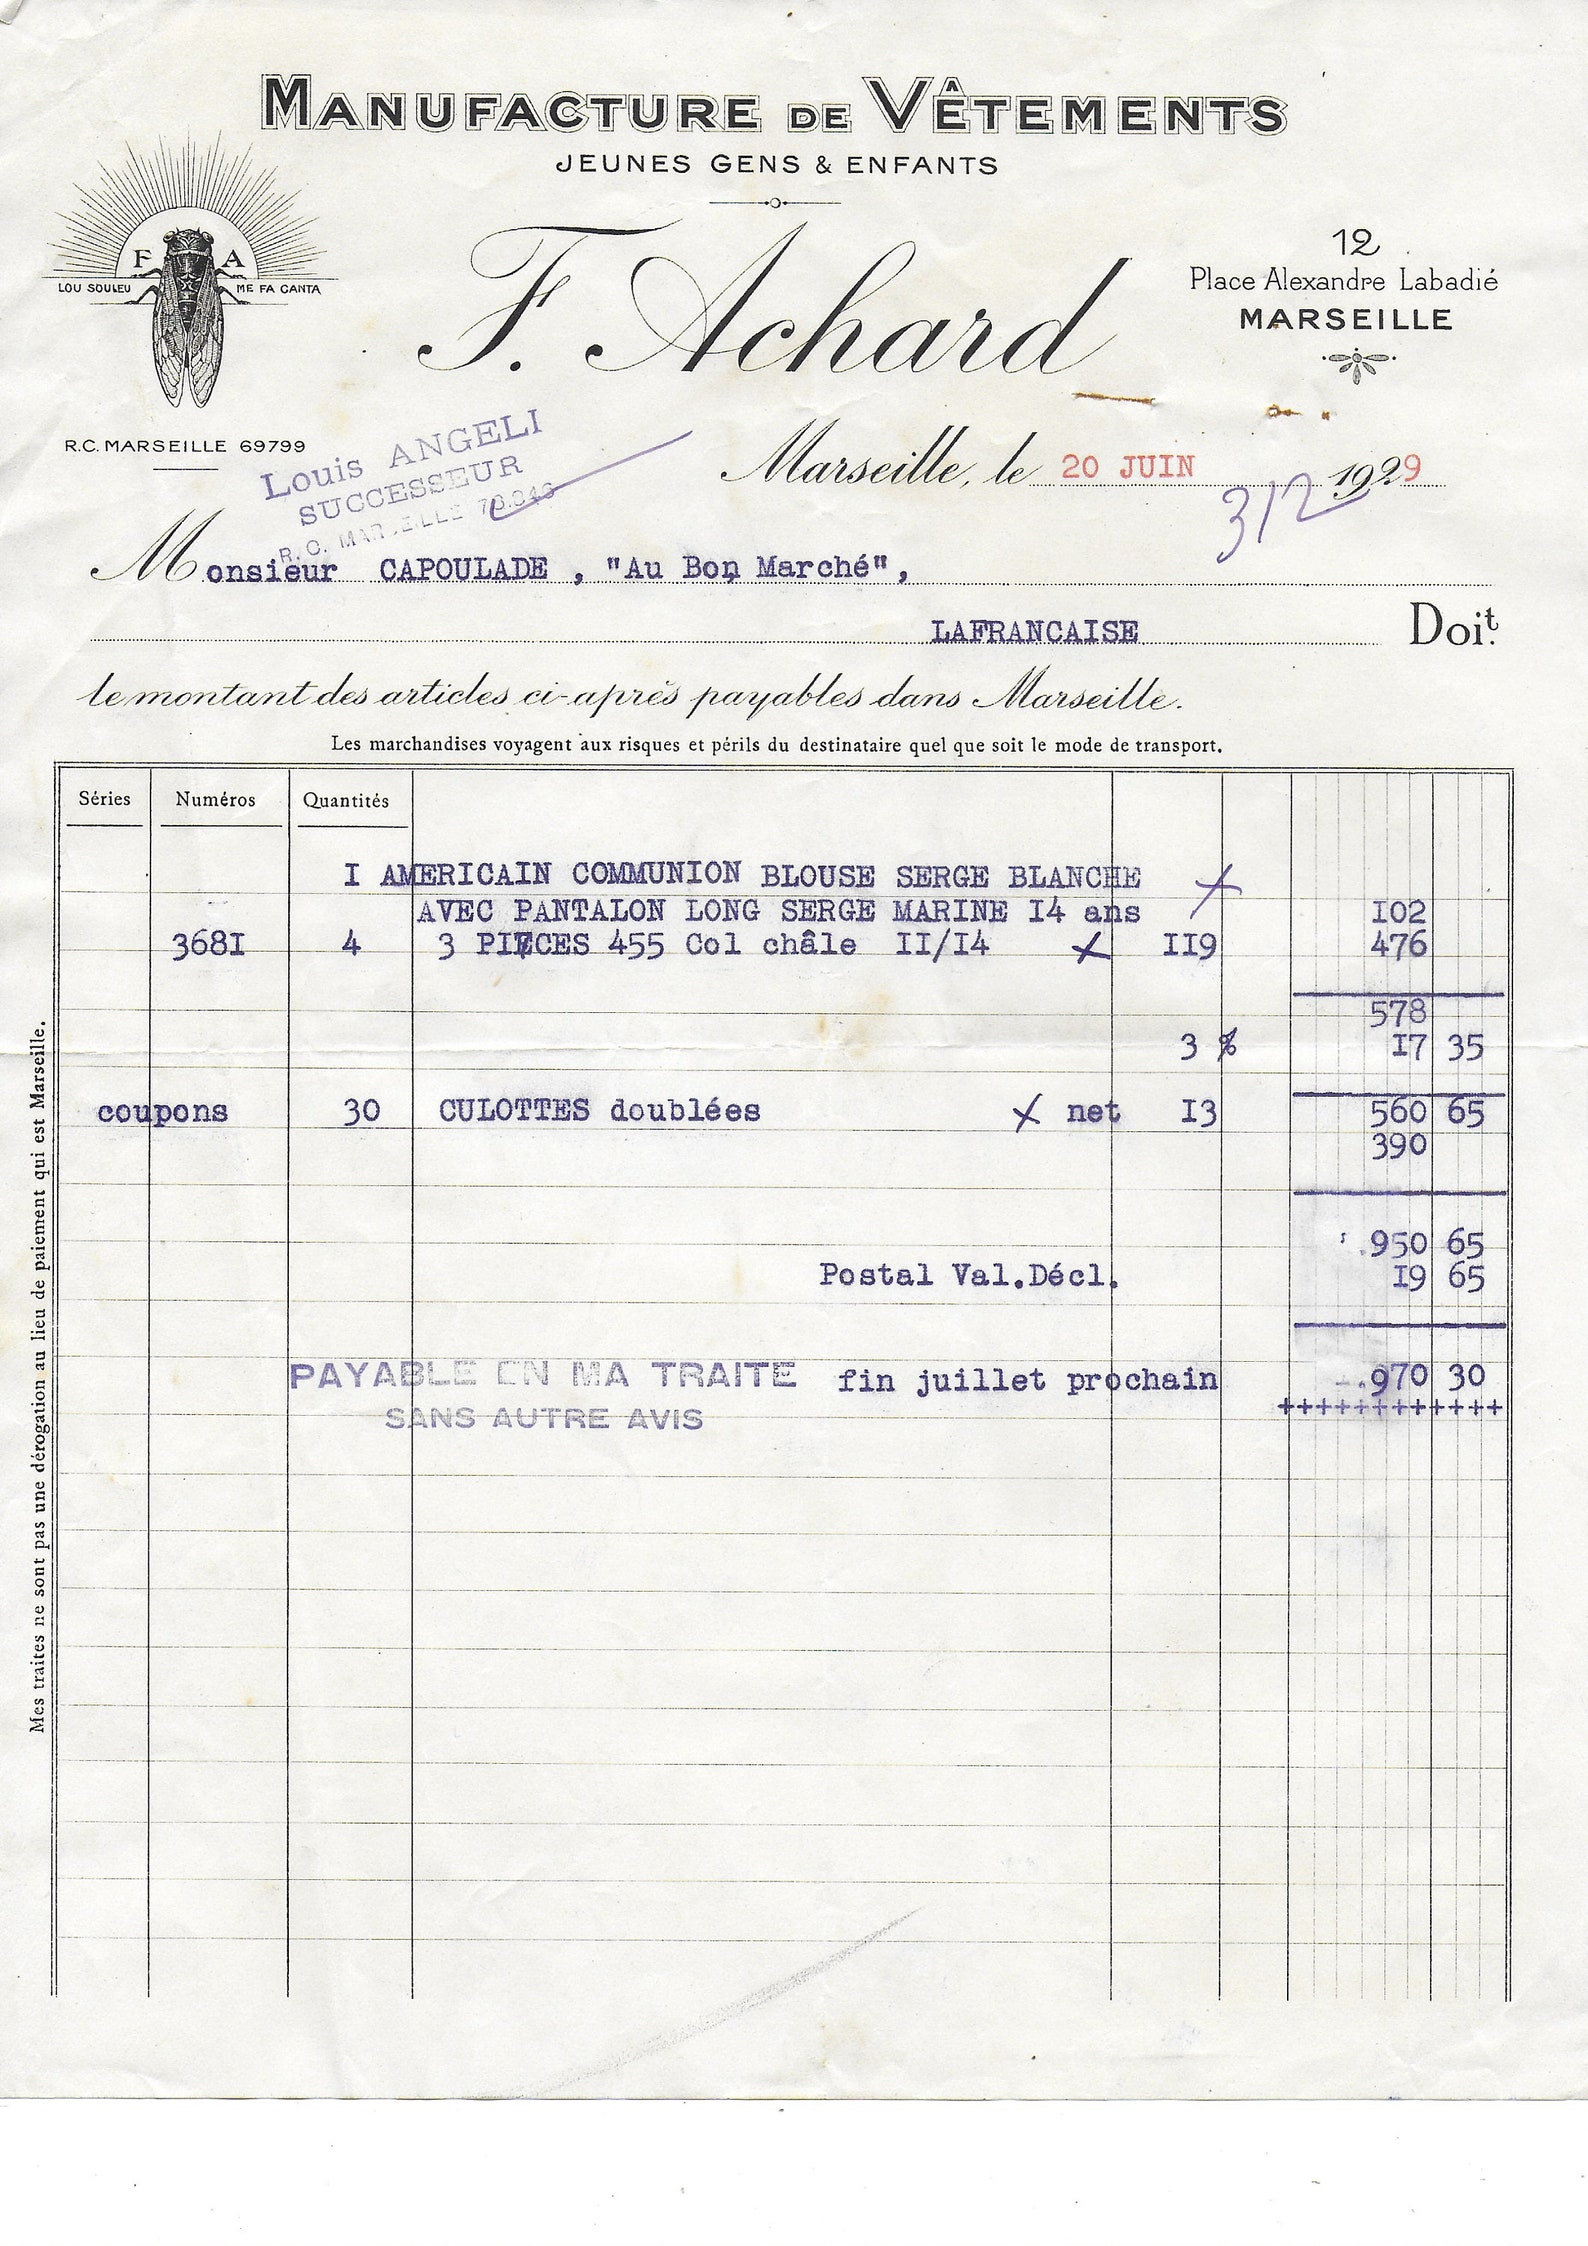 MANUFACTURE DE VÊTEMENTS
JEUNES GENS & ENFANTS
F A
LOU SOULEU ME FA CANTA
F. Achard
12
Place Alexandre Labadié
MARSEILLE
R.C. MARSEILLE 69799
Louis ANGELI
SUCCESSEUR
R. C. MARSEILLE
Marseille, le 20 JUIN 1929
312
Monsieur CAPOULADE , "Au Bon Marché",
LAFRANCAISE Doit.
le montant des articles ci-après payables dans Marseille.
Les marchandises voyagent aux risques et périls du destinataire quel que soit le mode de transport.
Séries Numéros Quantités
I AMERICAIN COMMUNION BLOUSE SERGE BLANCHE X
AVEC PANTALON LONG SERGE MARINE I4 ans I02
368I 4 3 PIECES 455 Col châle II/I4 X II9 476
578
3 % I7 35
coupons 30 CULOTTES doublées X net I3 560 65
390
.950 65
Postal Val.Décl. I9 65
PAYABLE EN MA TRAITE fin juillet prochain .970 30
SANS AUTRE AVIS ++++++++++++
Mes traites ne sont pas une dérogation au lieu de paiement qui est Marseille.